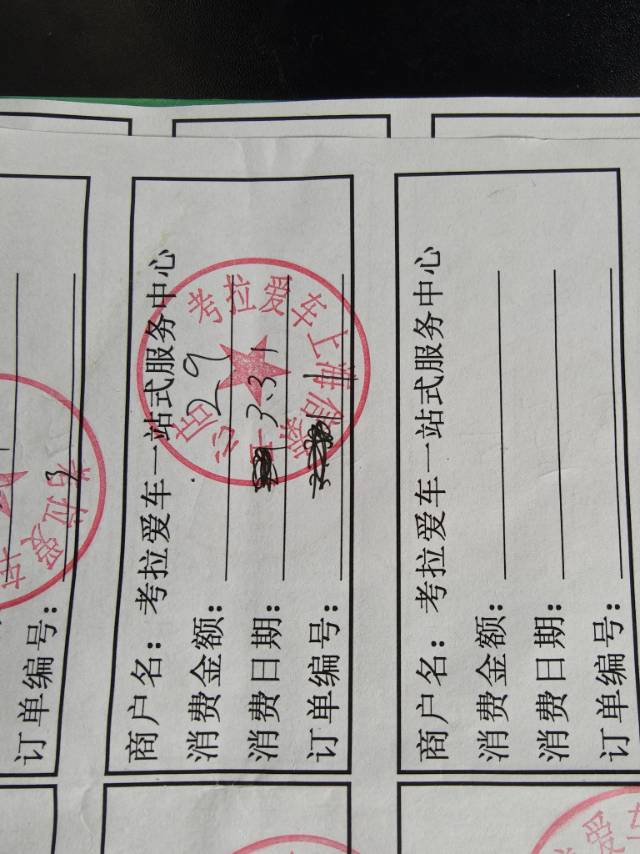 订单编号：
商户名：考拉爱车一站式服务中心
消费金额：29
消费日期：3.31
订单编号：
考拉爱车上海
商户名：考拉爱车一站式服务中心
消费金额：
消费日期：
订单编号：
考拉爱车
爱车